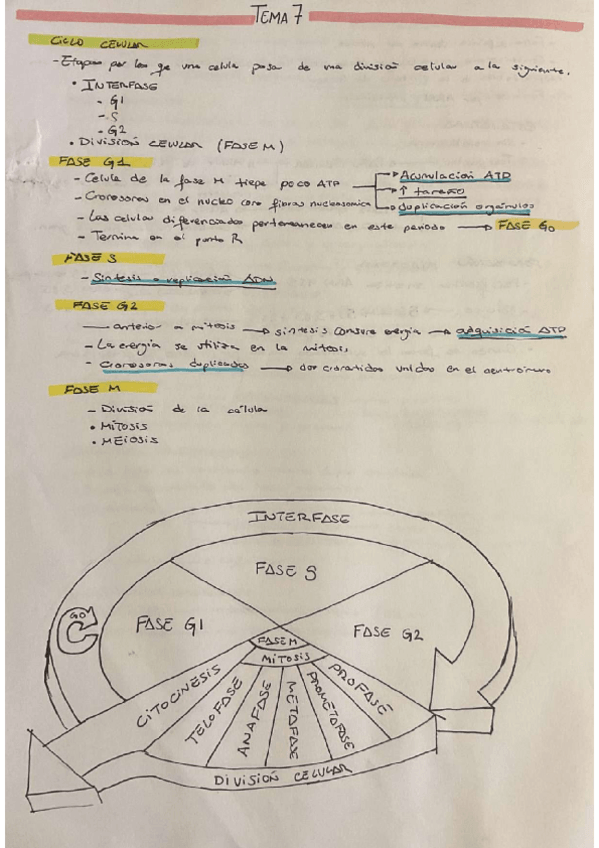 TEMA 7
CICLO CELULAR
- Etapas por las qe una celula pasa de una división celular a la siguiente.
• INTERFASE
- G1
- S
- G2
• DIVISIÓN CELULAR (FASE M)
FASE G1
- Celula de la fase M tiene poco ATP → Acumulación ATP
→ ↑ tamaño
- Cromosomas en el nucleo como fibras nucleosomica
→ duplicación orgánulos
- Las celulas diferenciadas permanecen en este periodo → FASE G0
- Termina en el punto R
FASE S
- Sintesis o replicación ADN
FASE G2
— anterior a mitosis → sintesis consume energia → adquisición ATP
- La energia se utiliza en la mitosis
- Cromosomas duplicados → dos cromatidas unidas en el centromero
FASE M
- División de la célula
• MITOSIS
• MEIOSIS
INTERFASE
FASE S
G0
FASE G1
FASE G2
FASE M
MITOSIS
CITOCINESIS
TELOFASE
ANAFASE
METAFASE
PROMETAFASE
PROFASE
DIVISIÓN CELULAR